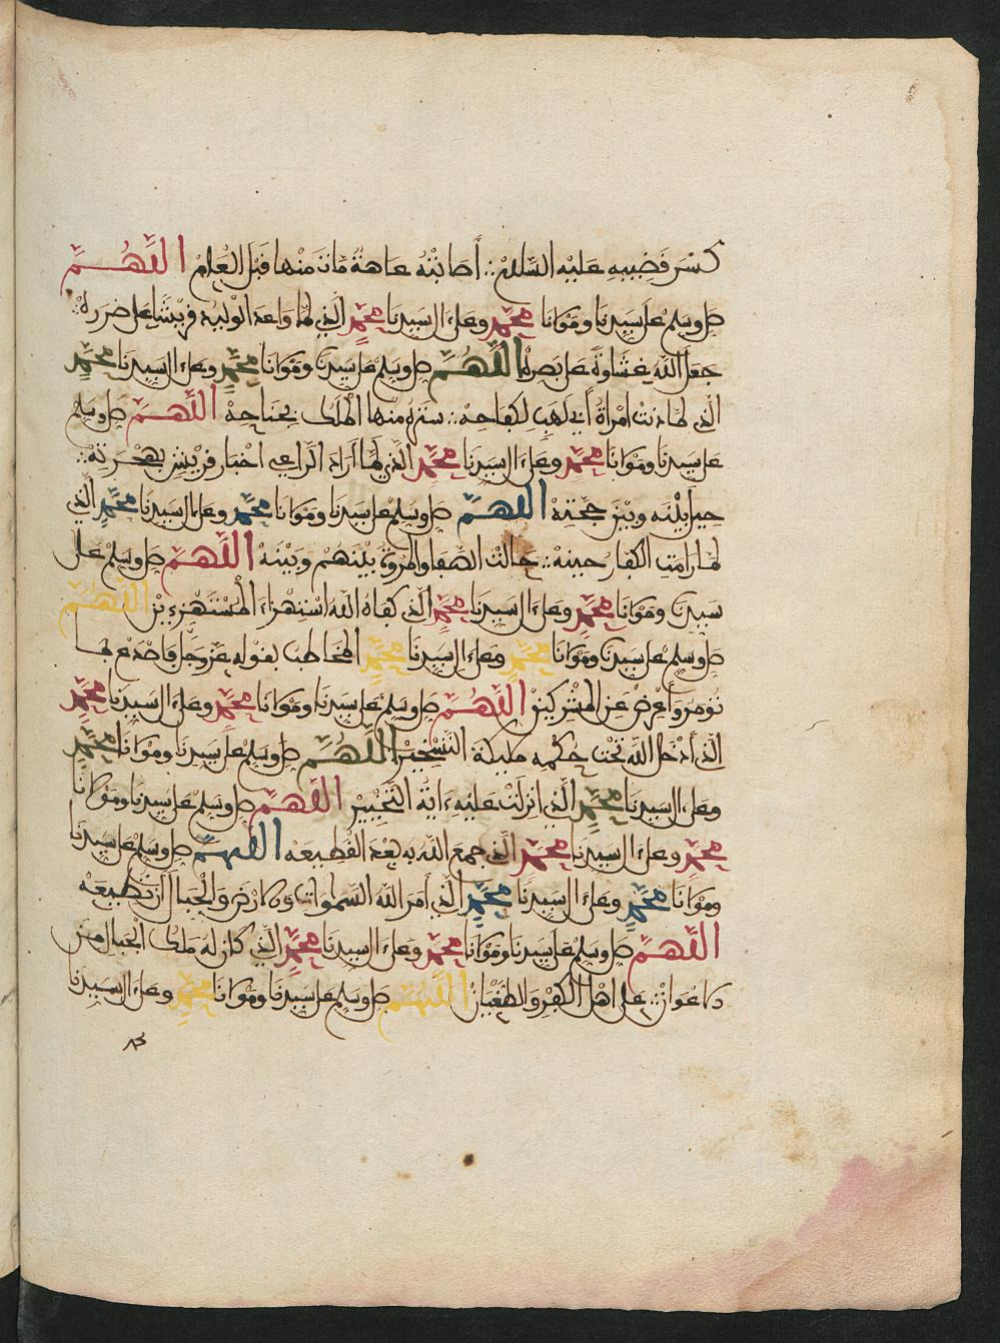 كسر قضيبه عليه السلام ∴ أصابته عاهة مات منها قبل العام اللهم
صل وسلم على سيدنا ومولانا محمد وعلى ءال سيدنا محمد الذي لما واعد الوليد قريشا على ضرره ∴
جعل الله غشاوة على بصره اللهم صل وسلم على سيدنا ومولانا محمد وعلى ءال سيدنا محمد
الذي لما دنت امرأة أبي لهب لكفاحه ∴ ستره منها الملك بجناحه اللهم صل وسلم
على سيدنا ومولانا محمد وعلى ءال سيدنا محمد الذي لما أراد الراعي اخبار قريش بهجرته ∴
حيل بينه وبين اللهم صل وسلم على سيدنا ومولانا محمد وعلى ءال سيدنا محمد الذي
لما رامت الكفار حينه ∴ حالت الصفا والمروة بينهم وبينه اللهم صل وسلم على
سيدنا ومولانا محمد وعلى ءال سيدنا محمد الذي كفاه الله استهزاء المستهزءين اللهم
صل وسلم على سيدنا ومولانا محمد وعلى ءال سيدنا محمد المخاطب بقوله عز وجل فاصدع بما
تومر وأعرض عن المشركين اللهم صل وسلم على سيدنا ومولانا محمد وعلى ءال سيدنا محمد
الذي أدخل الله تحت حكمه مليكة التسخير اللهم صل وسلم على سيدنا ومولانا محمد
وعلى ءال سيدنا محمد الذي انزلت عليه ءاية التخيير اللهم صل وسلم على سيدنا ومولانا
محمد وعلى ءال سيدنا محمد الذي جمع الله به بعد القطيعه اللهم صل وسلم على سيدنا
ومولانا محمد وعلى ءال سيدنا محمد الذي أمر الله السموات والارض والجبال ان تطيعه
اللهم صل وسلم على سيدنا ومولانا محمد وعلى ءال سيدنا محمد الذي كان له ملك الجبال من
الاعوان ∴ على اهل الكفر والطغيان اللهم صل وسلم على سيدنا ومولانا محمد وعلى ءال سيدنا